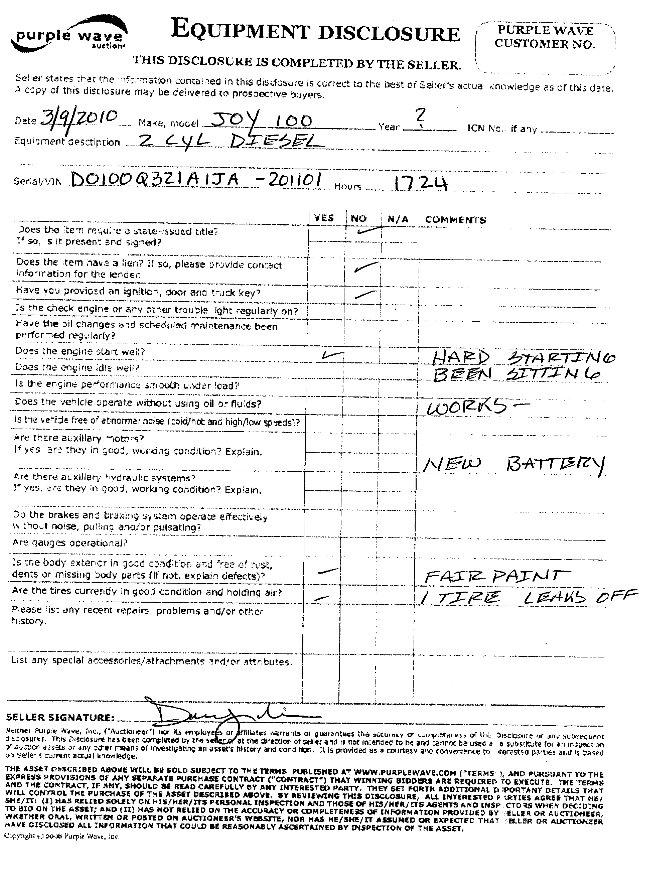 purple wave
auction
EQUIPMENT DISCLOSURE
PURPLE WAVE
CUSTOMER NO.
THIS DISCLOSURE IS COMPLETED BY THE SELLER.
Seller states that the information contained in this disclosure is correct to the best of Seller's actual knowledge as of this date.
A copy of this disclosure may be delivered to prospective buyers.
Date 3/9/2010 Make, model JOY 100 Year ? ICN No. if any
Equipment description 2 CYL DIESEL
Serial/VIN DO100Q321A1JA - 201101 Hours 1724
YES NO N/A COMMENTS
Does the item require a state-issued title?
If so, is it present and signed?
Does the item have a lien? If so, please provide contact
information for the lender.
Have you provided an ignition, door and truck key?
Is the check engine or any other trouble light regularly on?
Have the oil changes and scheduled maintenance been
performed regularly?
Does the engine start well? HARD STARTING
Does the engine idle well? BEEN SITTING
Is the engine performance smooth under load?
Does the vehicle operate without using oil or fluids? WORKS -
Is the vehicle free of abnormal noise (cold/hot and high/low speeds)?
Are there auxiliary motors?
If yes, are they in good, working condition? Explain. NEW BATTERY
Are there auxiliary hydraulic systems?
If yes, are they in good, working condition? Explain.
Do the brakes and braking system operate effectively
without noise, pulling and/or pulsating?
Are gauges operational?
Is the body exterior in good condition and free of rust,
dents or missing body parts (If not, explain defects)? FAIR PAINT
Are the tires currently in good condition and holding air? 1 TIRE LEAKS OFF
Please list any recent repairs, problems and/or other
history.
List any special accessories/attachments and/or attributes.
SELLER SIGNATURE:
Neither Purple Wave, Inc., ("Auctioneer") nor its employees or affiliates warrants or guarantees the accuracy or completeness of the Disclosure or any subsequent
disclosures. This Disclosure has been completed by the seller or at the direction of seller and is not intended to be and cannot be used a a substitute for an inspection
of auction assets or any other means of investigating an asset's history and condition. It is provided as a courtesy and convenience to interested parties and is based
on seller's current actual knowledge.
THE ASSET DESCRIBED ABOVE WILL BE SOLD SUBJECT TO THE TERMS PUBLISHED AT WWW.PURPLEWAVE.COM ("TERMS"), AND PURSUANT TO THE
EXPRESS PROVISIONS OF ANY SEPARATE PURCHASE CONTRACT ("CONTRACT") THAT WINNING BIDDERS ARE REQUIRED TO EXECUTE. THE TERMS
AND THE CONTRACT, IF ANY, SHOULD BE READ CAREFULLY BY ANY INTERESTED PARTY. THEY SET FORTH ADDITIONAL IMPORTANT DETAILS THAT
WILL CONTROL THE PURCHASE OF THE ASSET DESCRIBED ABOVE. BY REVIEWING THIS DISCLOSURE, ALL INTERESTED PARTIES AGREE THAT HE/
SHE/IT: (I) HAS RELIED SOLELY ON HIS/HER/ITS PERSONAL INSPECTION AND THOSE OF HIS/HER/ITS AGENTS AND INSPECTORS WHEN DECIDING
TO BID ON THE ASSET; AND (II) HAS NOT RELIED ON THE ACCURACY OR COMPLETENESS OF INFORMATION PROVIDED BY SELLER OR AUCTIONEER,
WHETHER ORAL, WRITTEN OR POSTED ON AUCTIONEER'S WEBSITE, NOR HAS HE/SHE/IT ASSUMED OR EXPECTED THAT SELLER OR AUCTIONEER
HAVE DISCLOSED ALL INFORMATION THAT COULD BE REASONABLY ASCERTAINED BY INSPECTION OF THE ASSET.
Copyright Purple Wave, Inc.